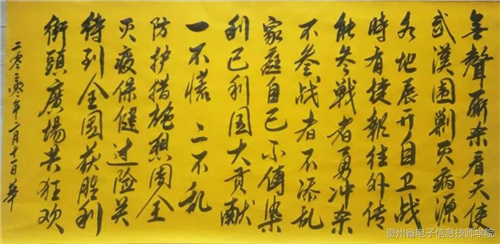 无聲厮杀看天使
武漢围剿灭病源
各地展开自卫战
時有捷報往外传
能参戰者勇冲杀
不参战者不添乱
家庭自己不傳染
利己利国大贡献
一不慌 二不乱
防护措施想周全
灭疫保健过险关
待到全国获胜利
街頭廣場共狂欢
二〇二〇年二月十一日
贵州省电子信息技师学院